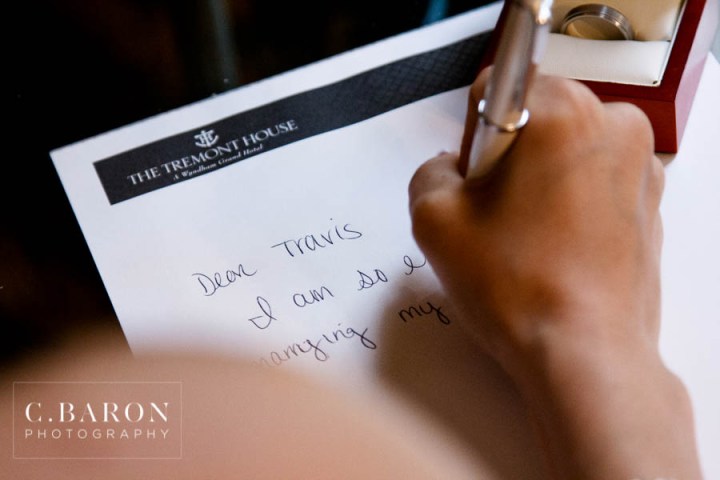 THE TREMONT HOUSE
A Wyndham Grand Hotel
Dear Travis
I am so e
marrying my
C. BARON
PHOTOGRAPHY